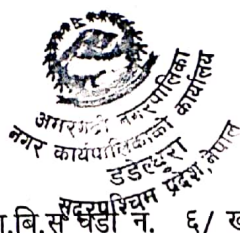 अमरगढी नगरपालिका
नगर कार्यपालिकाको कार्यालय
डडेल्धुरा
सुदूरपश्चिम प्रदेश, नेपाल
बि.स घडी नं. ६/ ख